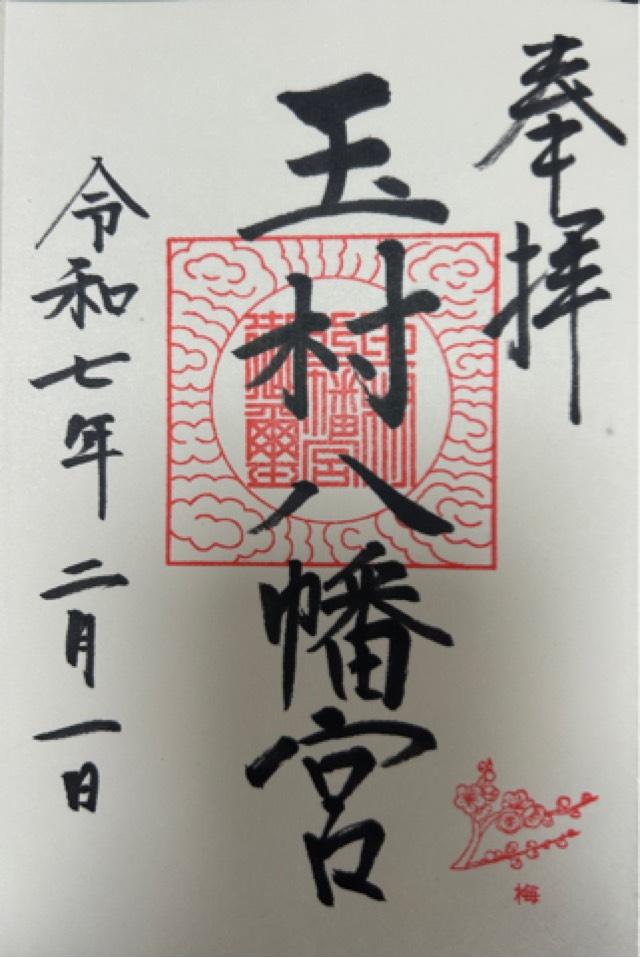 奉拝
玉村八幡宮
令和七年二月一日
梅